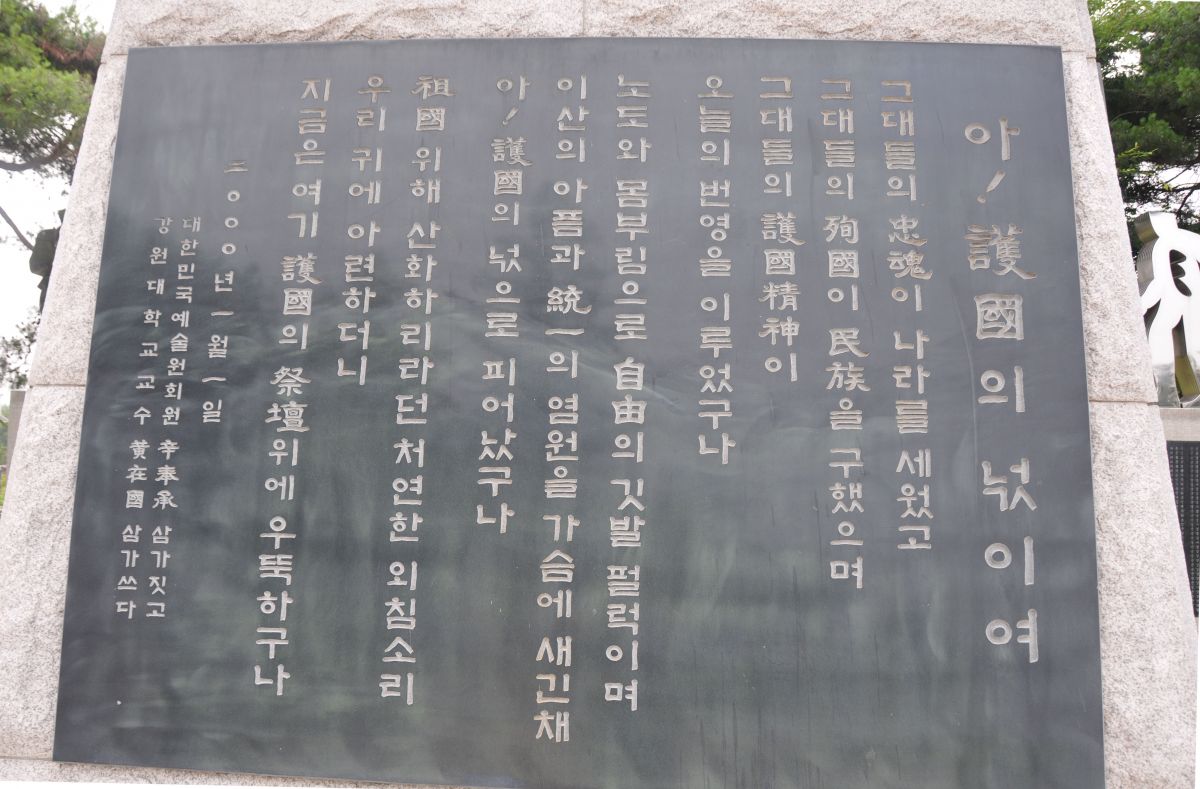 아! 護國의 넋이여
그대들의 忠魂이 나라를 세웠고
그대들의 殉國이 民族을 구했으며
그대들의 護國精神이
오늘의 번영을 이루었구나
노도와 몸부림으로 自由의 깃발 펄럭이며
이산의 아픔과 統一의 염원을 가슴에 새긴채
아! 護國의 넋으로 피어났구나
祖國 위해 산화하리라던 처연한 외침소리
우리 귀에 아련하더니
지금은 여기 護國의 祭壇위에 우뚝하구나
二○○○년 一월 一일
대한민국예술원회원 辛奉承 삼가짓고
강원대학교교수 黄在國 삼가쓰다